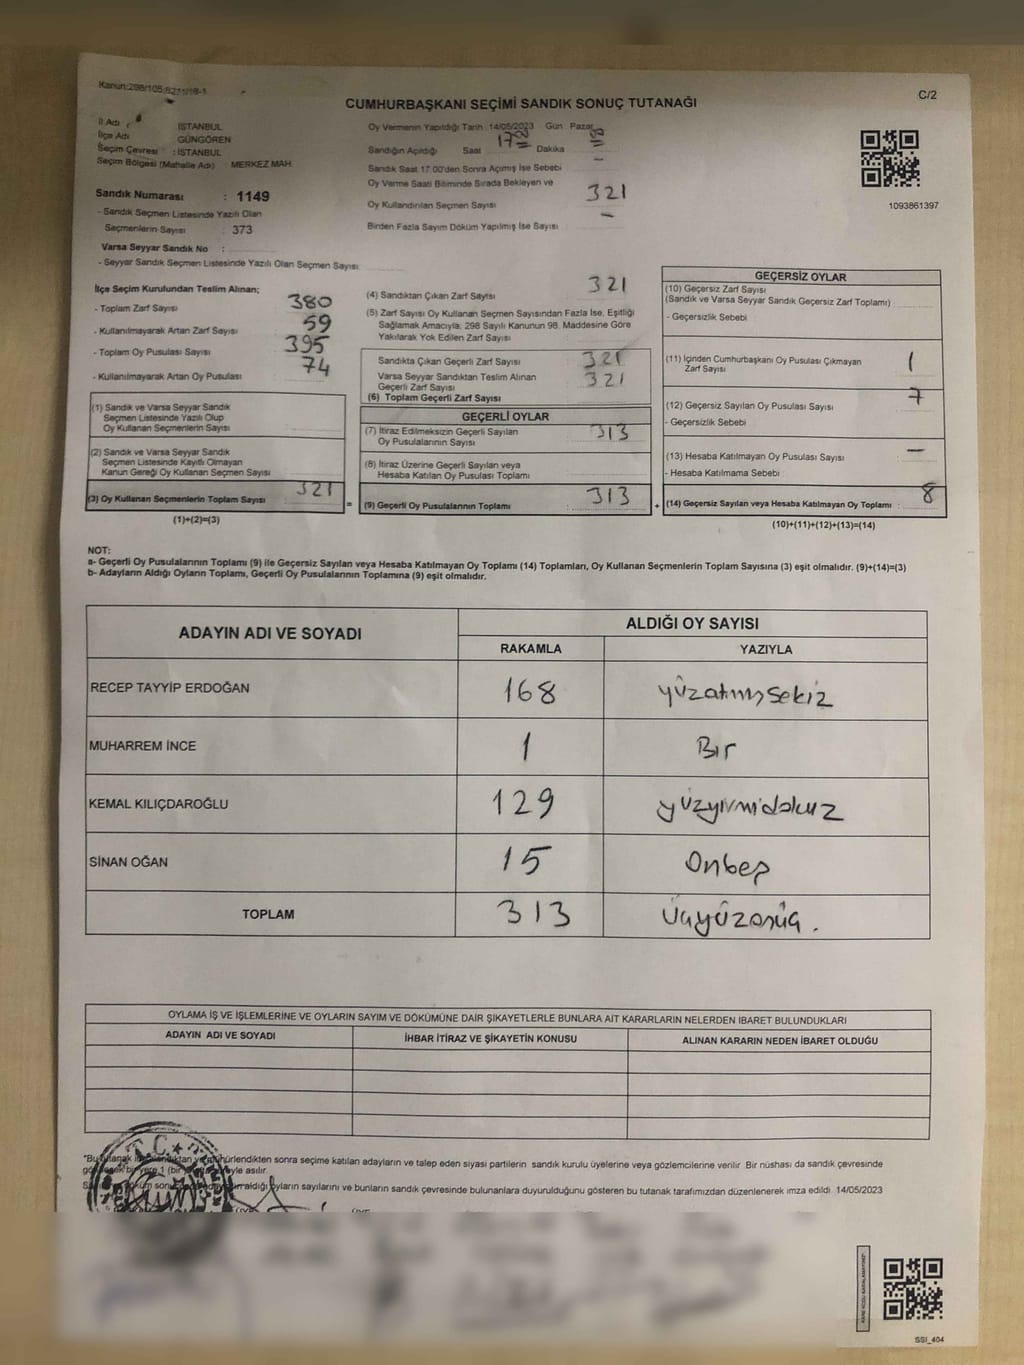 Kanun:298/105;6271/18-1
C/2
CUMHURBAŞKANI SEÇİMİ SANDIK SONUÇ TUTANAĞI
İl Adı : İSTANBUL
İlçe Adı : GÜNGÖREN
Seçim Çevresi : İSTANBUL
Seçim Bölgesi (Mahalle Adı) : MERKEZ MAH.
Sandık Numarası : 1149
- Sandık Seçmen Listesinde Yazılı Olan
Seçmenlerin Sayısı : 373
Varsa Seyyar Sandık No :
- Seyyar Sandık Seçmen Listesinde Yazılı Olan Seçmen Sayısı:
Oy Vermenin Yapıldığı Tarih :14/05/2023 Gün : Pazar
Sandığın Açıldığı Saat 17 00 Dakika 00
Sandık Saat 17:00'den Sonra Açımış İse Sebebi –
Oy Verme Saati Bitiminde Sırada Bekleyen ve
Oy Kullandırılan Seçmen Sayısı 321
Birden Fazla Sayım Döküm Yapılmış İse Sayısı –
1093861397
İlçe Seçim Kurulundan Teslim Alınan;
- Toplam Zarf Sayısı 380
- Kullanılmayarak Artan Zarf Sayısı 59
- Toplam Oy Pusulası Sayısı 395
- Kullanılmayarak Artan Oy Pusulası 74
(1) Sandık ve Varsa Seyyar Sandık
Seçmen Listesinde Yazılı Olup
Oy Kullanan Seçmenlerin Sayısı
(2) Sandık ve Varsa Seyyar Sandık
Seçmen Listesinde Kayıtlı Olmayan
Kanun Gereği Oy Kullanan Seçmen Sayısı
(3) Oy Kullanan Seçmenlerin Toplam Sayısı 321
(1)+(2)=(3)
=
(4) Sandıktan Çıkan Zarf Sayısı 321
(5) Zarf Sayısı Oy Kullanan Seçmen Sayısından Fazla İse, Eşitliği
Sağlamak Amacıyla, 298 Sayılı Kanunun 98. Maddesine Göre
Yakılarak Yok Edilen Zarf Sayısı
Sandıkta Çıkan Geçerli Zarf Sayısı 321
Varsa Seyyar Sandıktan Teslim Alınan
Geçerli Zarf Sayısı 321
(6) Toplam Geçerli Zarf Sayısı
GEÇERLİ OYLAR
(7) İtiraz Edilmeksizin Geçerli Sayılan
Oy Pusulalarının Sayısı 313
(8) İtiraz Üzerine Geçerli Sayılan veya
Hesaba Katılan Oy Pusulası Toplamı
(9) Geçerli Oy Pusulalarının Toplamı 313
+
GEÇERSİZ OYLAR
(10) Geçersiz Zarf Sayısı
(Sandık ve Varsa Seyyar Sandık Geçersiz Zarf Toplamı)
- Geçersizlik Sebebi
(11) İçinden Cumhurbaşkanı Oy Pusulası Çıkmayan
Zarf Sayısı 1
(12) Geçersiz Sayılan Oy Pusulası Sayısı 7
- Geçersizlik Sebebi
(13) Hesaba Katılmayan Oy Pusulası Sayısı –
- Hesaba Katılmama Sebebi
(14) Geçersiz Sayılan veya Hesaba Katılmayan Oy Toplamı : 8
(10)+(11)+(12)+(13)=(14)
NOT:
a- Geçerli Oy Pusulalarının Toplamı (9) ile Geçersiz Sayılan veya Hesaba Katılmayan Oy Toplamı (14) Toplamları, Oy Kullanan Seçmenlerin Toplam Sayısına (3) eşit olmalıdır. (9)+(14)=(3)
b- Adayların Aldığı Oyların Toplamı, Geçerli Oy Pusulalarının Toplamına (9) eşit olmalıdır.
ADAYIN ADI VE SOYADI
ALDIĞI OY SAYISI
RAKAMLA YAZIYLA
RECEP TAYYİP ERDOĞAN 168 yüzatmışsekiz
MUHARREM İNCE 1 Bir
KEMAL KILIÇDAROĞLU 129 yüzyirmidokuz
SİNAN OĞAN 15 Onbeş
TOPLAM 313 Üçyüzonüç.
OYLAMA İŞ VE İŞLEMLERİNE VE OYLARIN SAYIM VE DÖKÜMÜNE DAİR ŞİKAYETLERLE BUNLARA AİT KARARLARIN NELERDEN İBARET BULUNDUKLARI
ADAYIN ADI VE SOYADI İHBAR İTİRAZ VE ŞİKAYETİN KONUSU ALINAN KARARIN NEDEN İBARET OLDUĞU
T.C.
*Bu tutanak sonra seçime katılan adayların ve talep eden siyasi partilerin sandık kurulu üyelerine veya gözlemcilerine verilir. Bir nüshası da sandık çevresinde
bir yere 1 (bir) asılır.
oyların sayılarını ve bunların sandık çevresinde bulunanlara duyurulduğunu gösteren bu tutanak tarafımızdan düzenlenerek imza edildi 14/05/2023
SSI_404